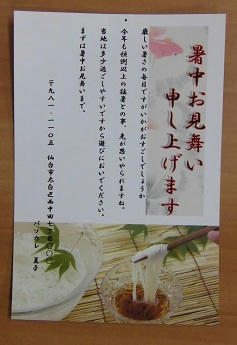 暑中お見舞い
申し上げます
厳しい暑さの毎日ですがいかがおすごしでしょうか
今年も例年以上の猛暑との事、先が思いやられますね。
当地は多少過ごしやすいですから遊びにおいでください。
まずは暑中お見舞いまで。
〒九八一-一一〇五 仙台市太白区西中田七丁目〇〇
パソカレ 夏子